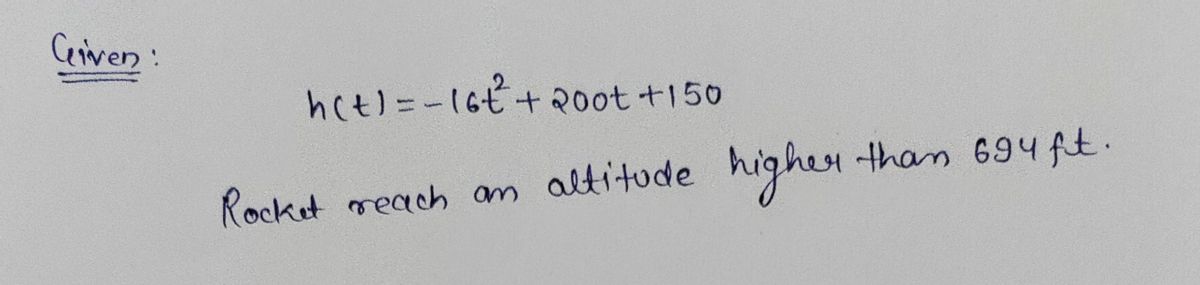 Given :
h(t) = -16t² + 200t + 150
Rocket reach an altitude higher than 694 ft.